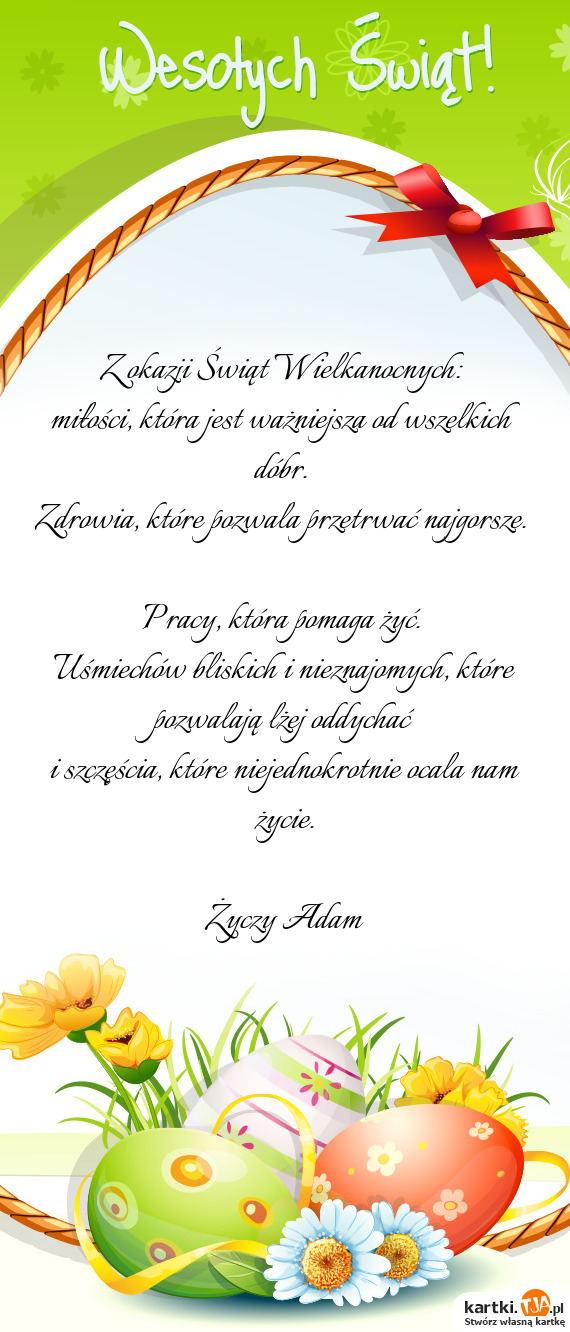 Wesołych Świąt!
Z okazji Świąt Wielkanocnych:
miłości, która jest ważniejsza od wszelkich
dóbr.
Zdrowia, które pozwala przetrwać najgorsze.
Pracy, która pomaga żyć.
Uśmiechów bliskich i nieznajomych, które
pozwalają lżej oddychać
i szczęścia, które niejednokrotnie ocala nam
życie.
Życzy Adam
kartki.TJA.pl
Stwórz własną kartkę